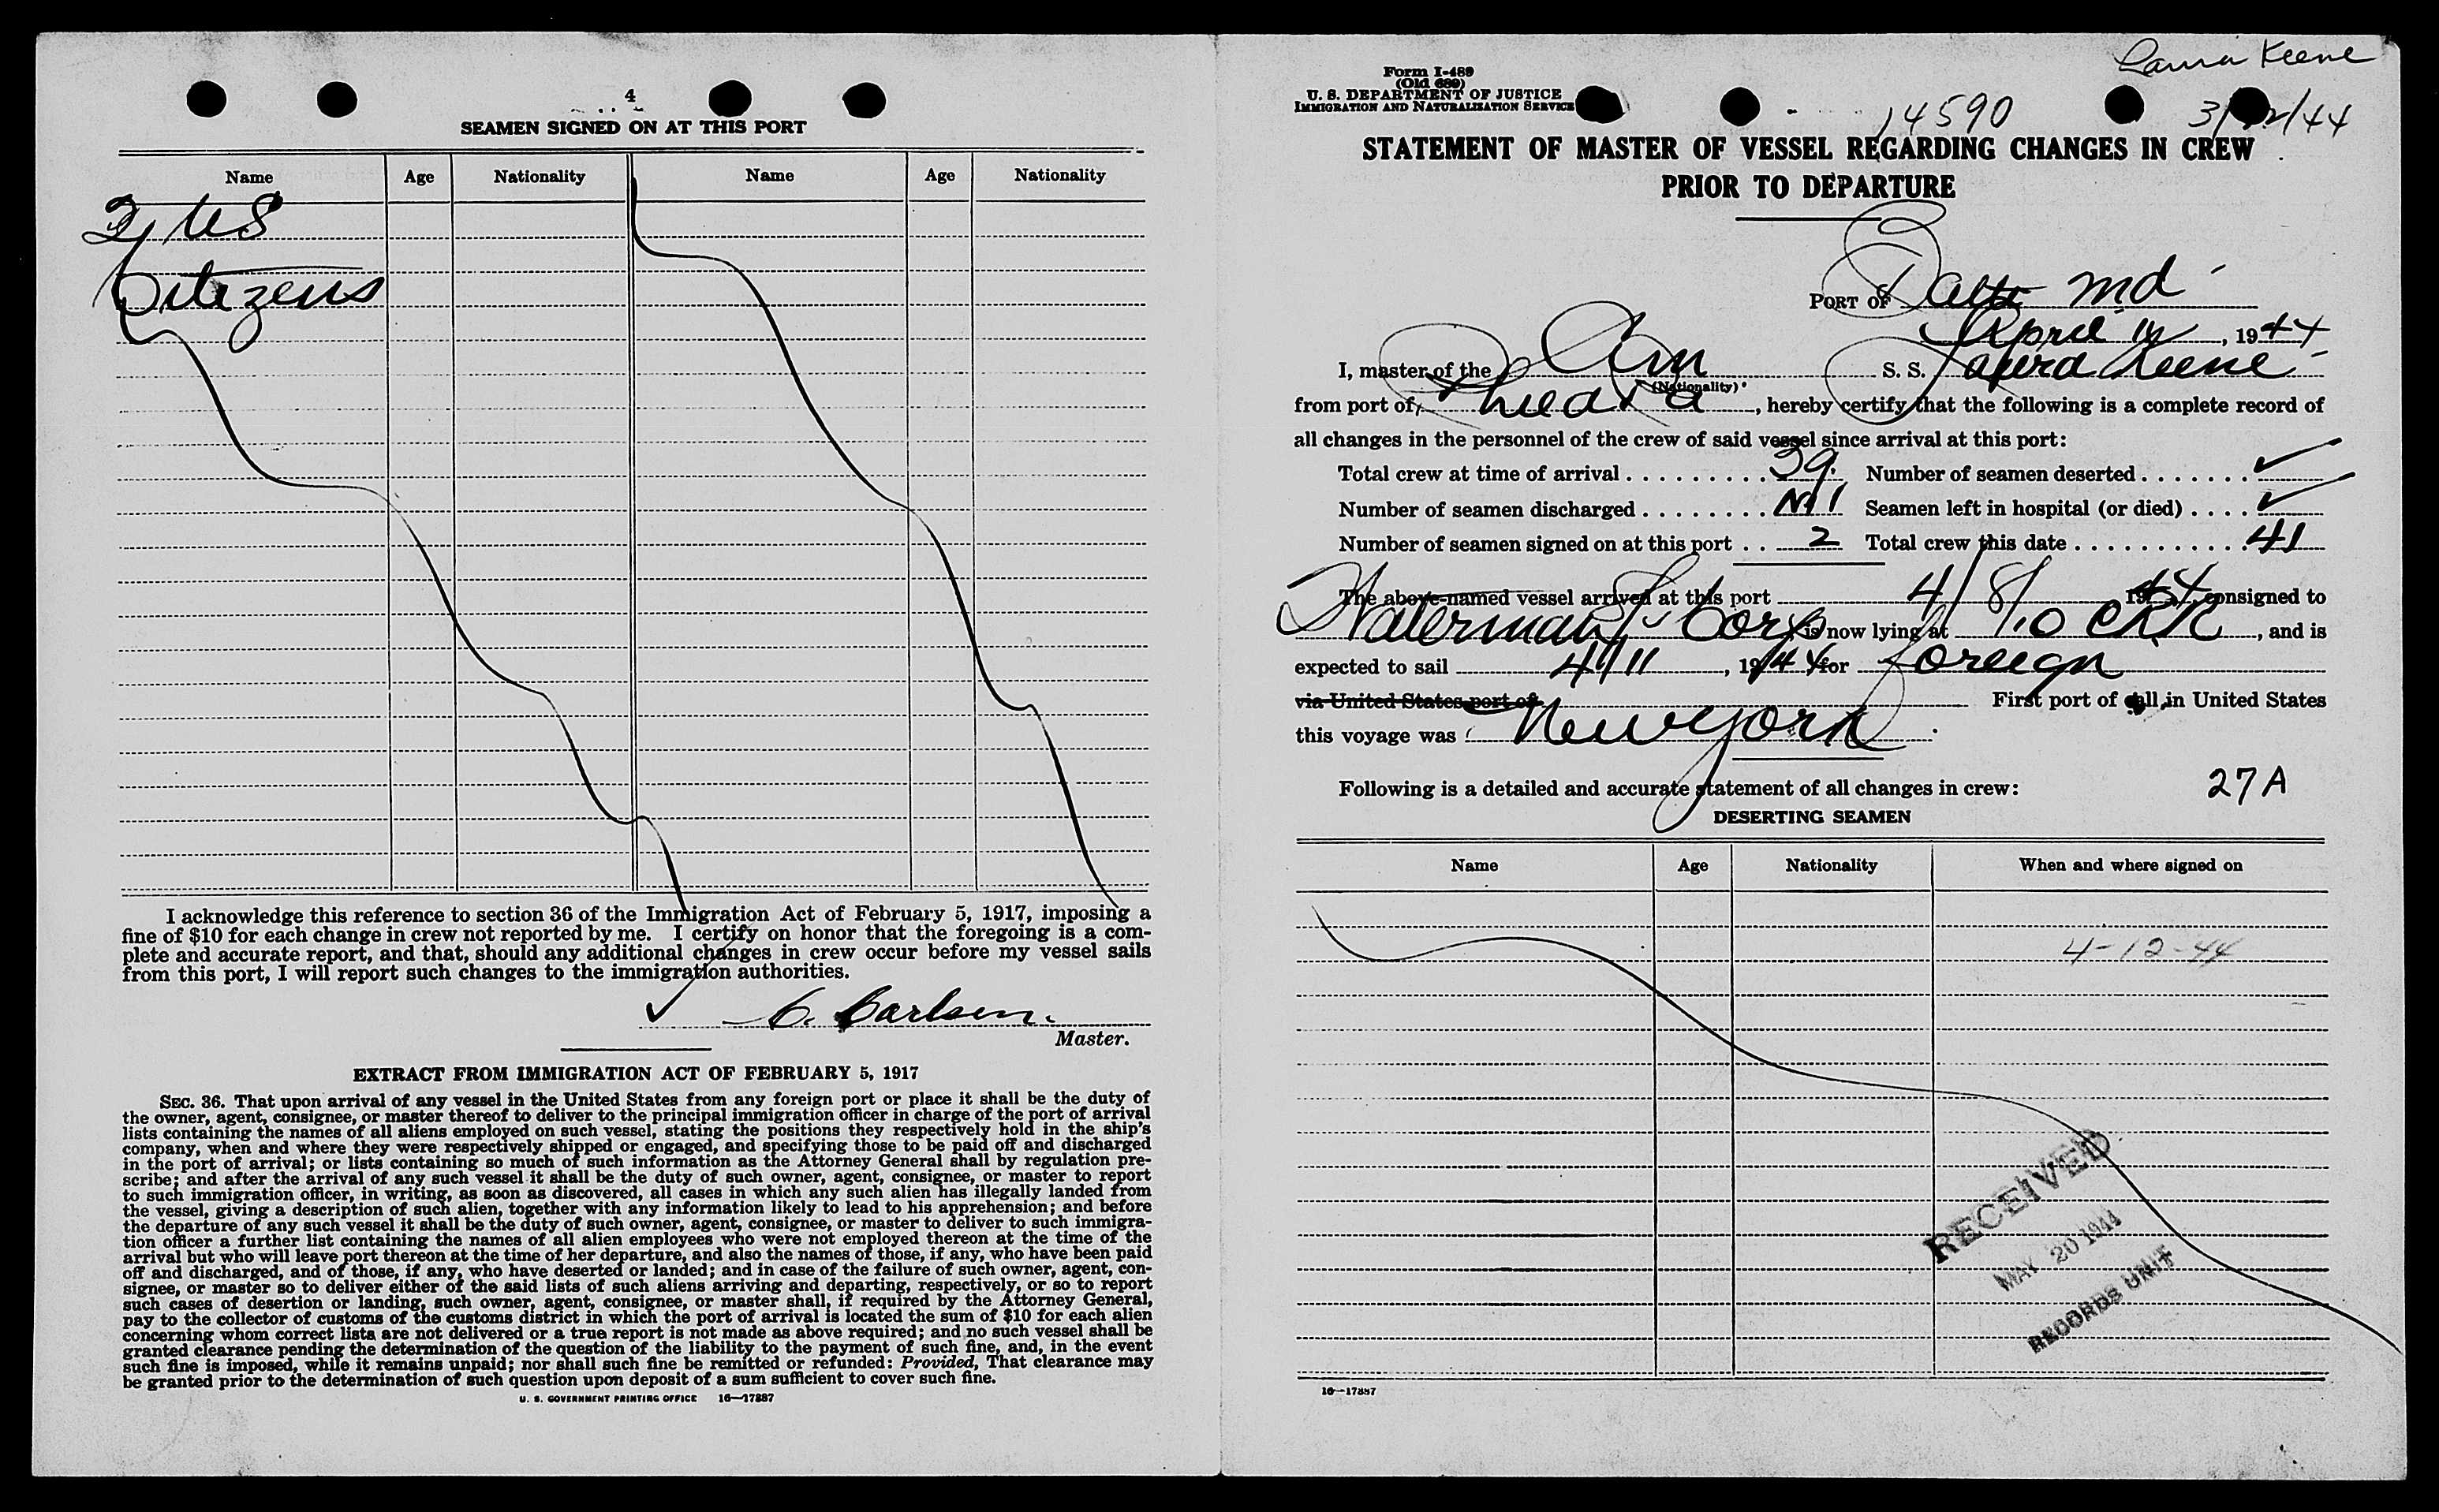 4
SEAMEN SIGNED ON AT THIS PORT
Name Age Nationality Name Age Nationality
2 US
Citizens
I acknowledge this reference to section 36 of the Immigration Act of February 5, 1917, imposing a
fine of $10 for each change in crew not reported by me. I certify on honor that the foregoing is a com-
plete and accurate report, and that, should any additional changes in crew occur before my vessel sails
from this port, I will report such changes to the immigration authorities.
C. Carlsen.
Master.
EXTRACT FROM IMMIGRATION ACT OF FEBRUARY 5, 1917
SEC. 36. That upon arrival of any vessel in the United States from any foreign port or place it shall be the duty of
the owner, agent, consignee, or master thereof to deliver to the principal immigration officer in charge of the port of arrival
lists containing the names of all aliens employed on such vessel, stating the positions they respectively hold in the ship's
company, when and where they were respectively shipped or engaged, and specifying those to be paid off and discharged
in the port of arrival; or lists containing so much of such information as the Attorney General shall by regulation pre-
scribe; and after the arrival of any such vessel it shall be the duty of such owner, agent, consignee, or master to report
to such immigration officer, in writing, as soon as discovered, all cases in which any such alien has illegally landed from
the vessel, giving a description of such alien, together with any information likely to lead to his apprehension; and before
the departure of any such vessel it shall be the duty of such owner, agent, consignee, or master to deliver to such immigra-
tion officer a further list containing the names of all alien employees who were not employed thereon at the time of the
arrival but who will leave port thereon at the time of her departure, and also the names of those, if any, who have been paid
off and discharged, and of those, if any, who have deserted or landed; and in case of the failure of such owner, agent, con-
signee, or master so to deliver either of the said lists of such aliens arriving and departing, respectively, or so to report
such cases of desertion or landing, such owner, agent, consignee, or master shall, if required by the Attorney General,
pay to the collector of customs of the customs district in which the port of arrival is located the sum of $10 for each alien
concerning whom correct lists are not delivered or a true report is not made as above required; and no such vessel shall be
granted clearance pending the determination of the question of the liability to the payment of such fine, and, in the event
such fine is imposed, while it remains unpaid; nor shall such fine be remitted or refunded: Provided, That clearance may
be granted prior to the determination of such question upon deposit of a sum sufficient to cover such fine.
U. S. GOVERNMENT PRINTING OFFICE 16—17887
Laura Keene
Form I-489
(Old 689)
U. S. DEPARTMENT OF JUSTICE
IMMIGRATION AND NATURALIZATION SERVICE
14590 3/ /44
STATEMENT OF MASTER OF VESSEL REGARDING CHANGES IN CREW
PRIOR TO DEPARTURE
PORT OF Balto Md
April , 1944
I, master of the Am S. S. Laura Keene
(Nationality)
from port of , hereby certify that the following is a complete record of
all changes in the personnel of the crew of said vessel since arrival at this port:
Total crew at time of arrival 39 Number of seamen deserted ✓
Number of seamen discharged Nil Seamen left in hospital (or died) ✓
Number of seamen signed on at this port 2 Total crew this date 41
The above-named vessel arrived at this port 4/8/ 1944, consigned to
Waterman SS Corp is now lying at , and is
expected to sail 4/11, 1944 for Foreign
via United States port of First port of call in United States
this voyage was New York
Following is a detailed and accurate statement of all changes in crew: 27A
DESERTING SEAMEN
Name Age Nationality When and where signed on
4-12-44
RECEIVED
MAY 20 1944
RECORDS UNIT
16—17887